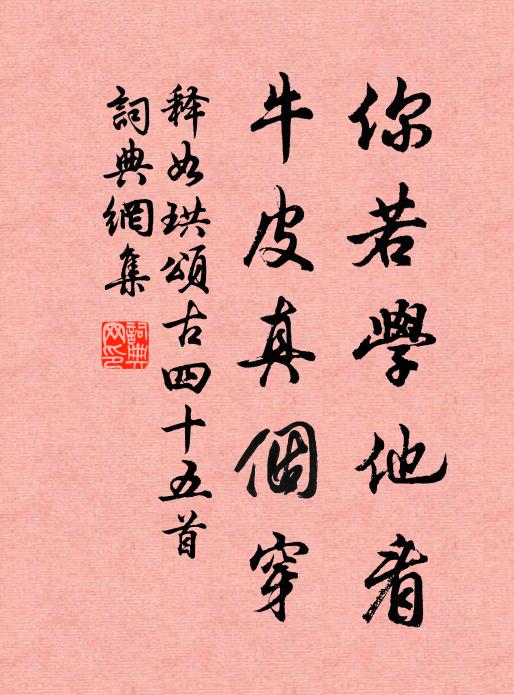 你若學他看
牛皮真個穿
释如珙頌古四十五首
詞典網集
詞典網印